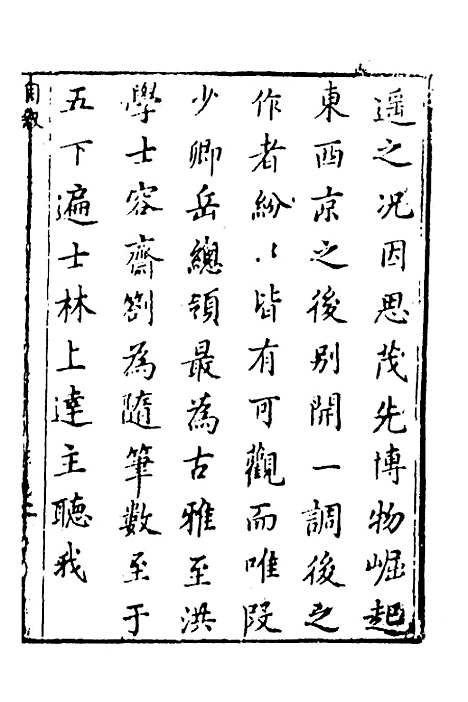 遥之况因思茂先博物崛起
東西京之後别開一調後之
作者紛〻皆有可觀而唯段
少卿岳總領最為古雅至洪
學士容齋劄為隨筆數至于
五下遍士林上達主聽我
自敘